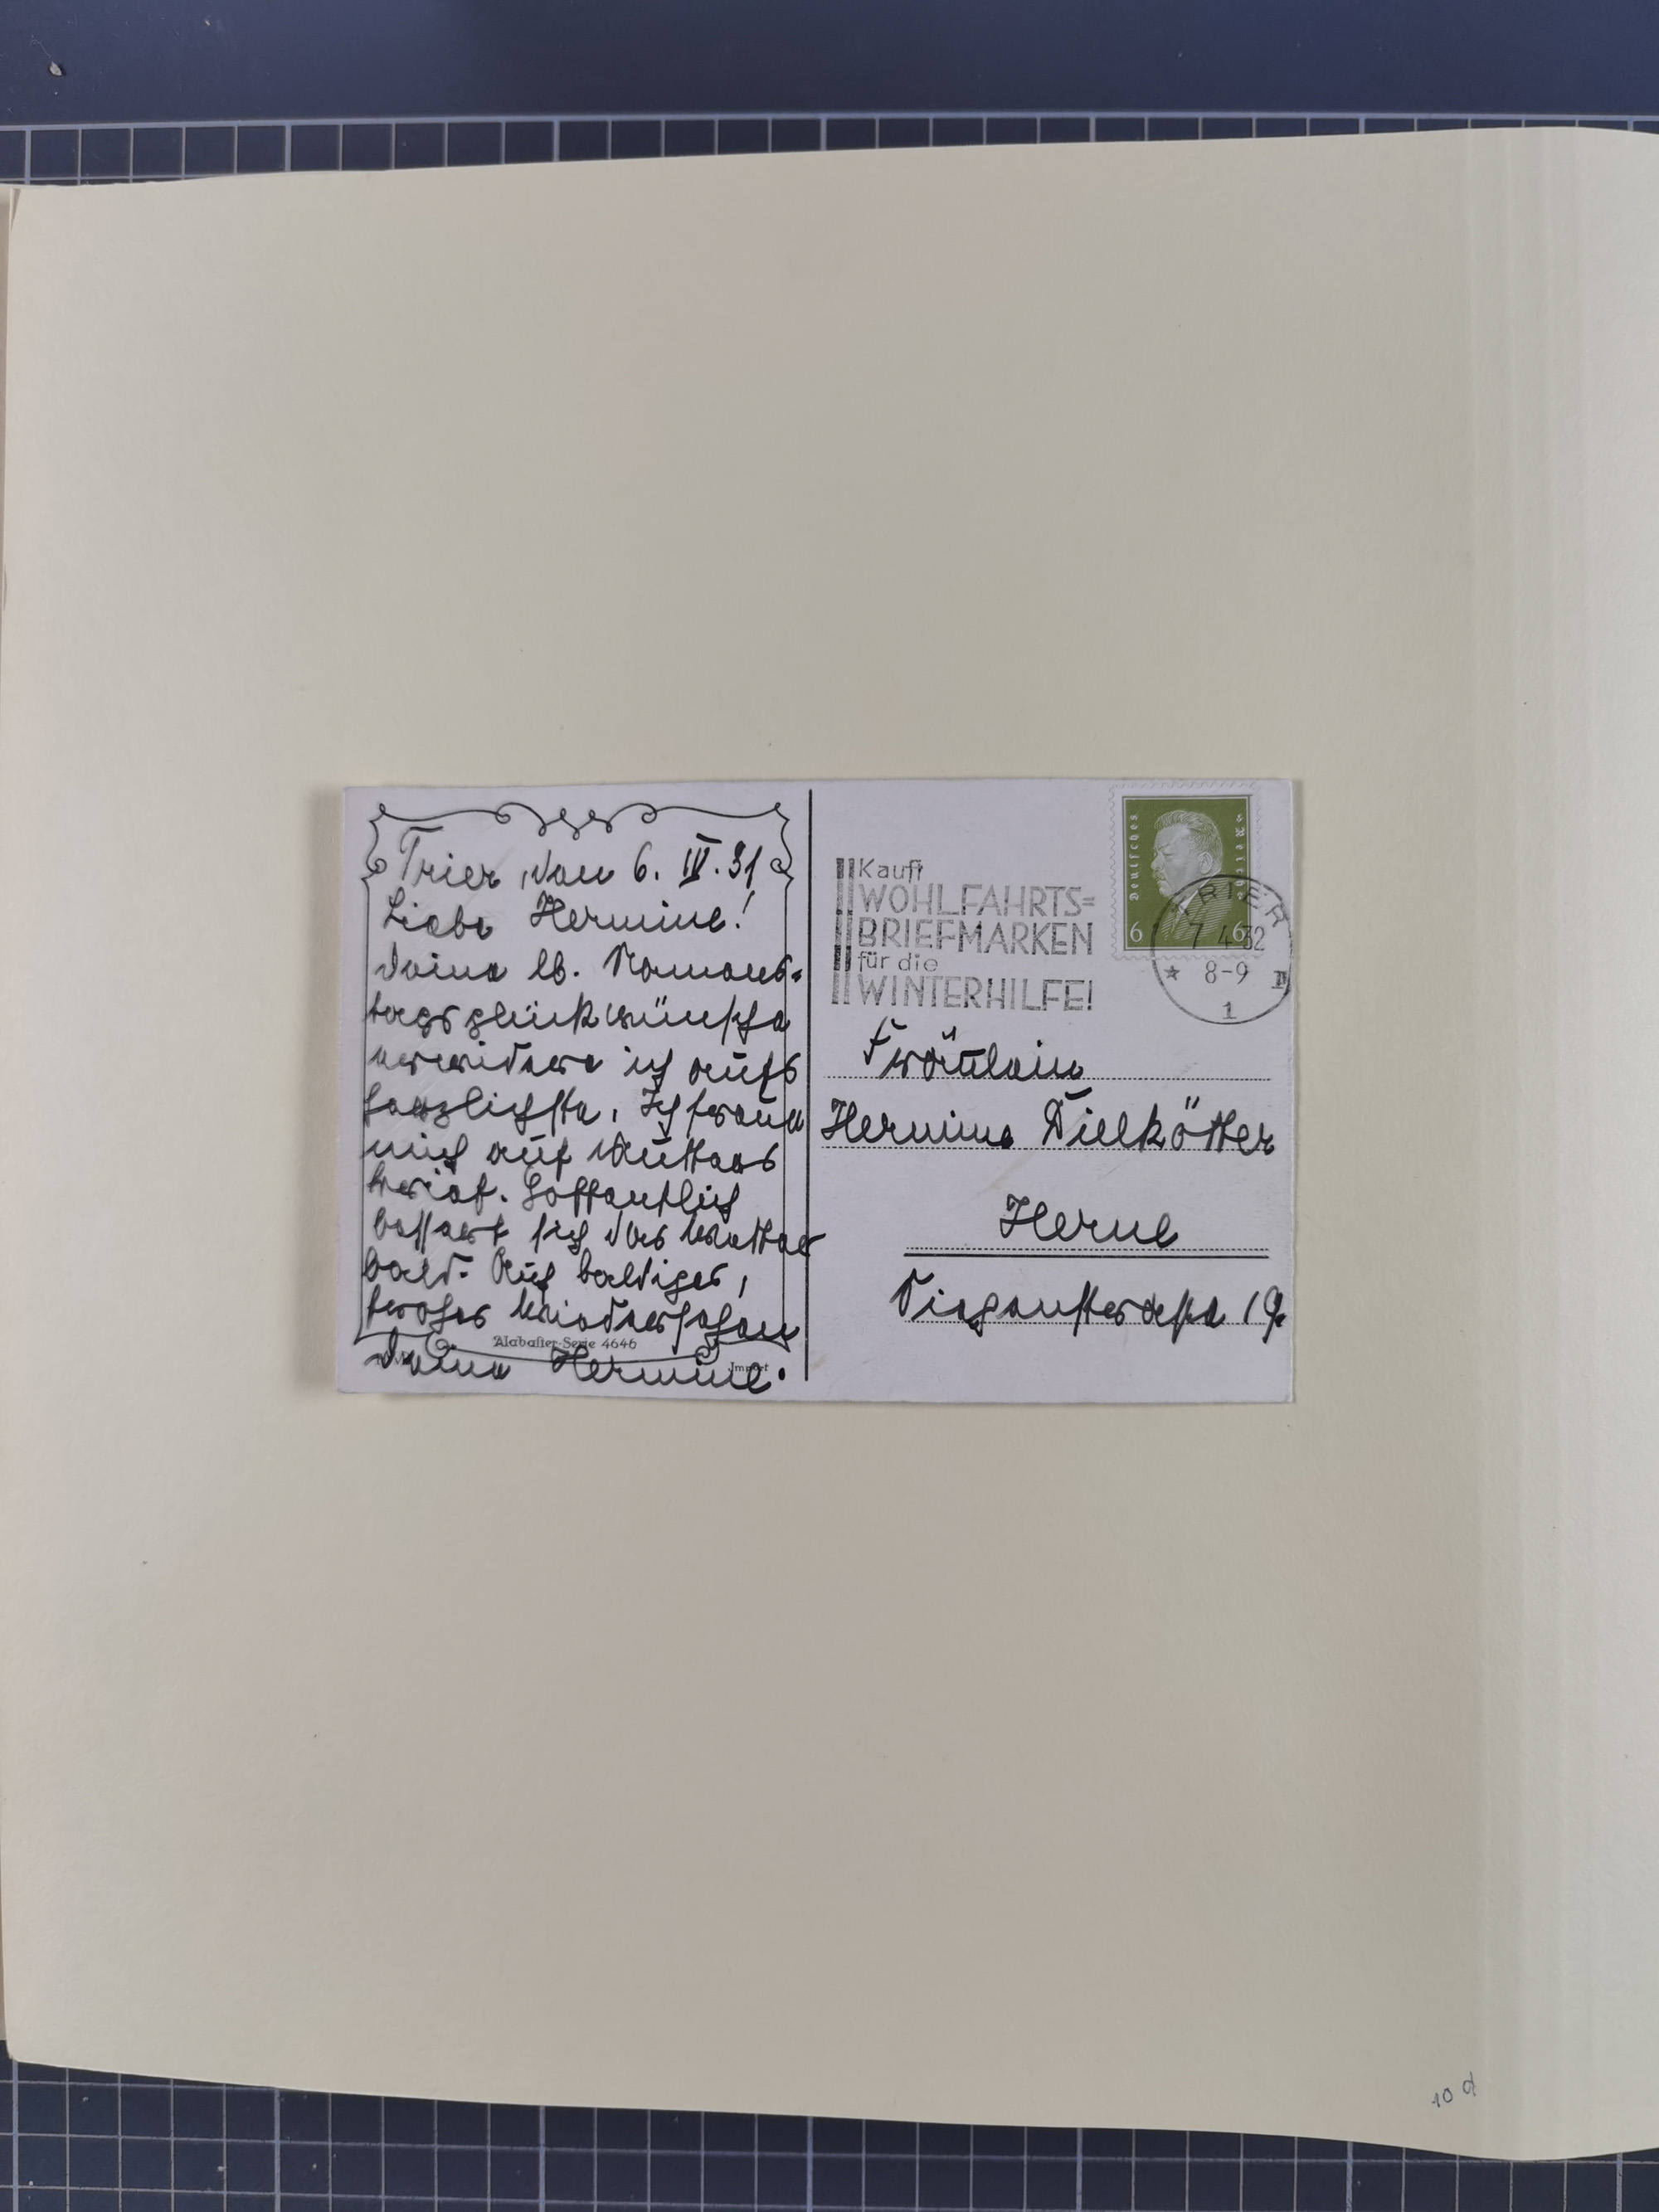 Trier, den 6. IV. 31
Liebe Hermine!
Deine lb. Namens-
tagsglückwünsche
erwidere ich aufs
herzlichste. Ich freue
mich auf Mutters
brief. Hoffentlich
bessert sich das Wetter
bald. Auf baldiges,
frohes Wiedersehen
Deine Hermine.
Alabaster-Serie 4646
Import
Kauft
WOHLFAHRTS=
BRIEFMARKEN
für die
WINTERHILFE!
Deutsches Reich
6 6
TRIER
7 4 32
* 8-9
1
Fräulein
Hermine Dielkötter
Herne
19
10 d